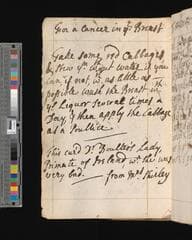 For a Cancer in yᵉ Breast
Take some red Cabbage
in if you
can, if not, in as little as
possible wash the Breast in
yᵉ Liquor several times a
Day, & then apply the Cabbage
as a Poultice
This cured Dʳ Boulter's Lady,
Primate of Ireland wᵗ the was
very bad from Mʳˢ Shirley